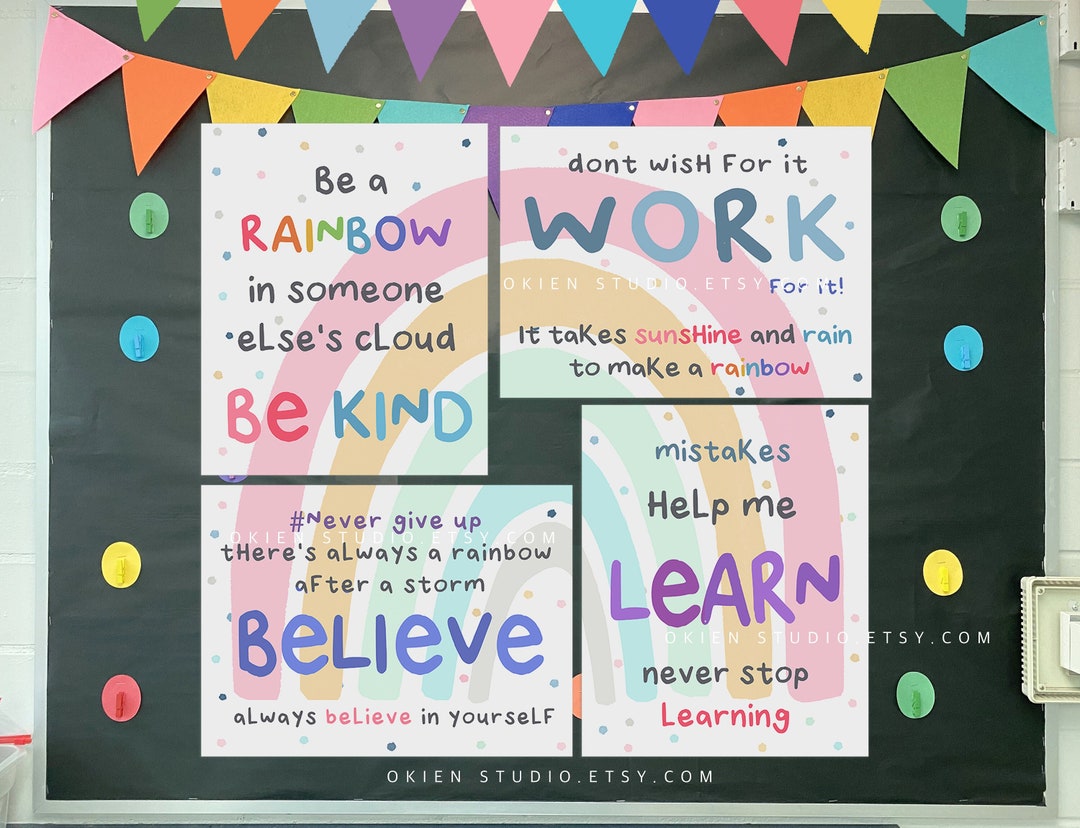 Be a
RAINBOW
in someone
else's cloud
Be KIND
dont wish For it
WORK
For it!
It takes sunshine and rain
to make a rainbow
OKIEN STUDIO.ETSY.COM
#Never give up
there's always a rainbow
after a storm
BeLIeve
always believe in yourself
OKIEN STUDIO.ETSY.COM
mistakes
Help me
LeARN
never stop
Learning
OKIEN STUDIO.ETSY.COM
OKIEN STUDIO.ETSY.COM